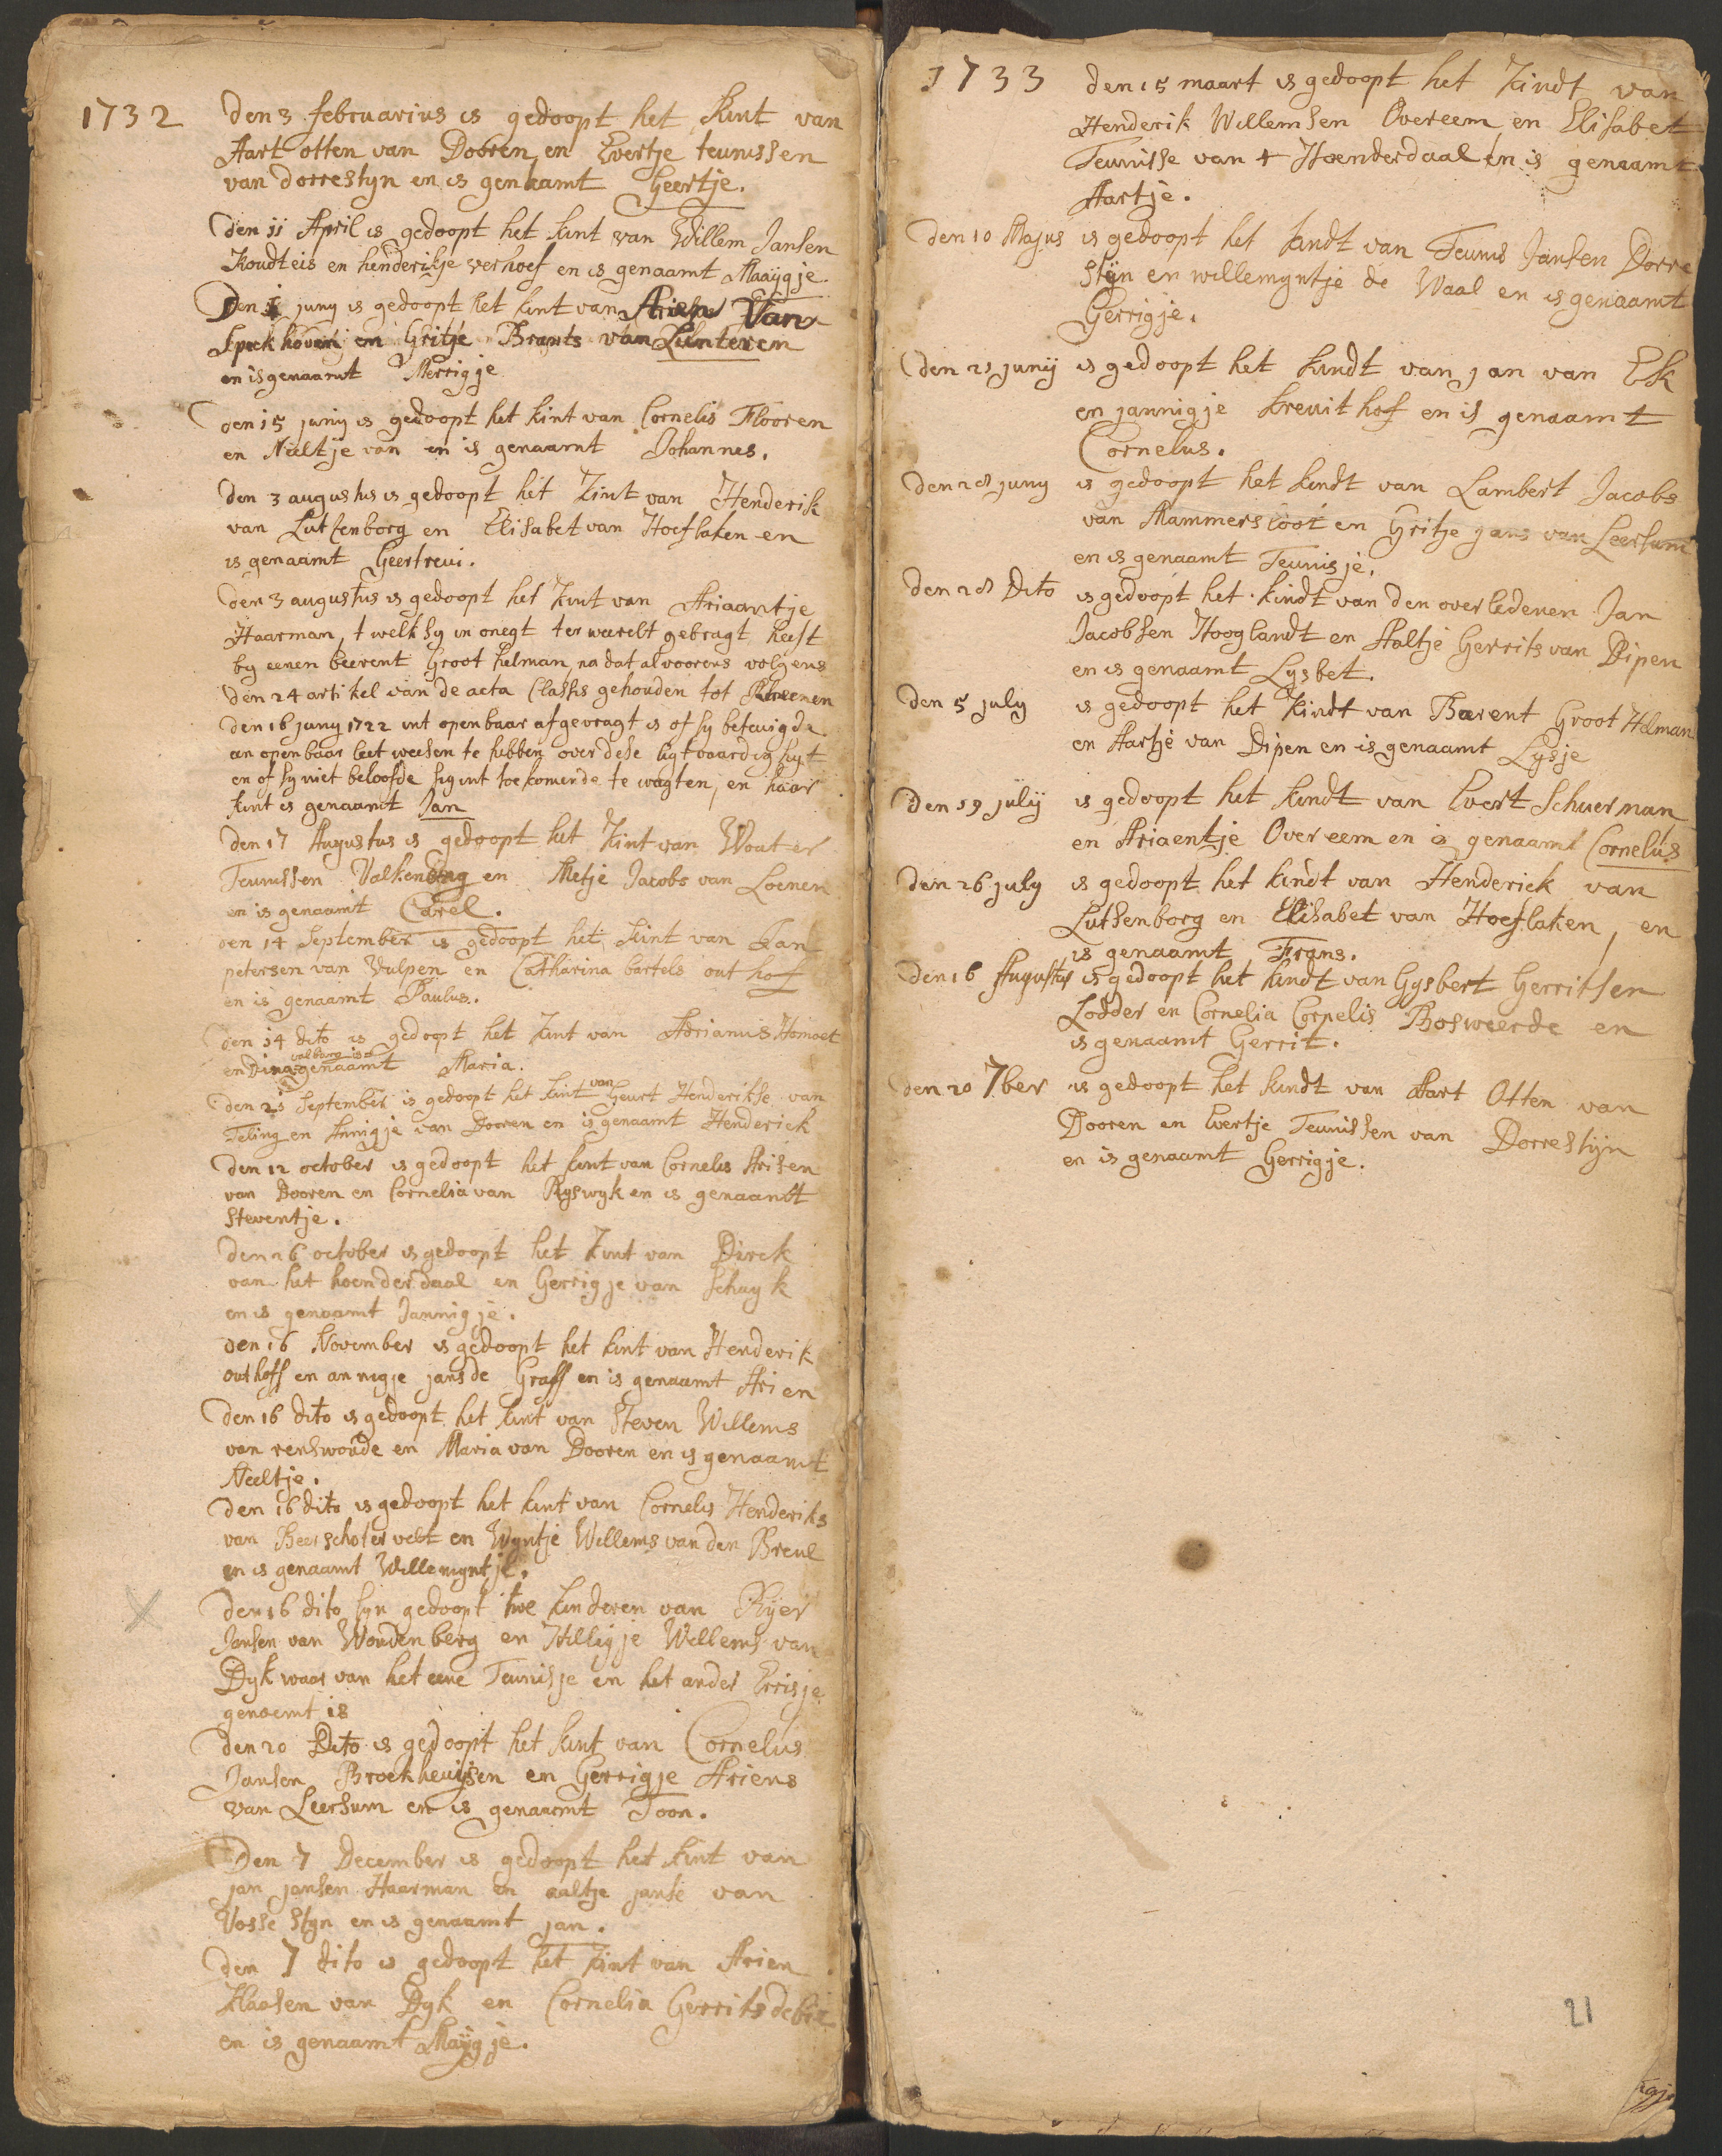 1732
Den 3 februarius is gedoopt het kint van
Aart otten van Dooren, en Evertje teunissen
van dorrestyn en is genaamt Geertje.
den 11 April is gedoopt het kint van Willem Jansen
Koudteis en henderikje verhoef en is genaamt Maaygje
Den 1 juny is gedoopt het kint van Arien Van
Speckhoven en Gritje Brants van Lunteren
en is genaamt Merrigje
den 15 juny is gedoopt het kint van Cornelis Flooren
en Neeltje van en is genaamt Johannes.
den 3 augustus is gedoopt het kint van Henderik
van Lutsenborg en Elisabet van Hoeflaken en
is genaamt Geertreui.
den 3 augustus is gedoopt het kint van Ariaantje
Haarman, t welk sy in onegt ter weerelt gebragt heeft
by eenen beerent Groot helman, na dat alvoorens volgens
den 24 artikel van de acta Classis gehouden tot Rheenen
den 16 juny 1722 int openbaar afgevragt is of sy betuigde
an openbaar leet weesen te hebben over dese ligtvaardigheyt
en of sy niet beloofde sig int toekomende te wagten, en haar
kint is genaamt Jan
den 17 Augustus is gedoopt het kint van Wouter
Teunissen Valkenburg en Metje Jacobs van Loenen
en is genaamt Carel.
den 14 September is gedoopt het kint van Jan
petersen van Vulpen en Catharina bartels out hof
en is genaamt Paulus.
den 14 dito is gedoopt het kint van Adrianus Homoet
en Dina valburg is genaamt Maria.
den 21 September is gedoopt het kint van Geurt Henderikse van
Teling en Annigje van Dooren en is genaamt Henderick
den 12 october is gedoopt het kint van Cornelis Arisen
van Dooren en Cornelia van Ryswyk en is genaamt
Steventje.
den 26 october is gedoopt het kint van Dirck
van het hoenderdaal en Gerrigje van Schayk
en is genaamt Jannigje.
den 16 November is gedoopt het kint van Henderik
outhoff en annigje jans de Graff en is genaamt Arien
den 16 dito is gedoopt het kint van Steven Willems
van renswoude en Maria van Dooren en is genaamt
Neeltje.
den 16 dito is gedoopt het kint van Cornelis Henderiks
van Beerschoter velt en Wyntje Willems van den Breul
en is genaamt Willemyntje.
den 16 dito syn gedoopt twe kinderen van Ryer
Jansen van Woudenberg en Hilligje Willems van
Dyk waar van het eene Teunisje en het ander Errisje
genoemt is
den 20 Dito is gedoopt het kint van Cornelius
Jansen Broekheuysen en Gerrigje Ariens
van Leersum en is genaamt Toon.
Den 7 December is gedoopt het kint van
jan jansen Haarman en aaltje janse van
Vosse Styn en is genaamt jan.
den 7 dito is gedoopt het kint van Arien
Klaasen van Dyk en Cornelia Gerrits de bie
en is genaamt Mayygje.
1733
den 15 maart is gedoopt het kindt van
Henderik Willemsen Overeem, en Elisabet
Teunisse van t Hoenderdaal en is genaamt
Aartje.
den 10 Majus is gedoopt het kindt van Teunis Jansen Dorre
Styn en willemyntje de Waal en is genaamt
Gerrigje.
den 21 junij is gedoopt het kindt van jan van Ek
en jannigje kreuit hof en is genaamt
Cornelus.
den 28 juny is gedoopt het kindt van Lambert Jacobs
van Mammersloot en Gritje jans van Leersum
en is genaamt Teunisje.
den 28 Dito is gedoopt het kindt van den overledenen Jan
Jacobsen Hooglandt en Aaltje Gerrits van Dipen
en is genaamt Lysbet.
den 5 july is gedoopt het kindt van Barent Groot Helman
en Aartje van Dipen en is genaamt Lysje
den 19 julij is gedoopt het kindt van Evert Schuerman
en Ariaentje Overeem en is genaamt Cornelus
den 26 july is gedoopt het kindt van Henderick van
Lutsenborg en Elisabet van Hoeflaken, en
is genaamt Frans.
den 16 Augustus is gedoopt het kindt van Gysbert Gerritsen
Lodder en Cornelia Cornelis Bosweerde en
is genaamt Gerrit.
den 20 7ber is gedoopt het kindt van Aart Otten van
Dooren en Evertje Teunissen van Dorrestijn
en is genaamt Gerrigje.
21